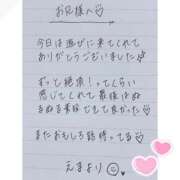 お兄様へ♡
今日は遊びに来てくれて
ありがとうございました
ずっと絶頂！ってくらい
感じてくれて最後はぬ
るぬる素股でもて良かった♡
またおもしろ話待ってる♡
えまより